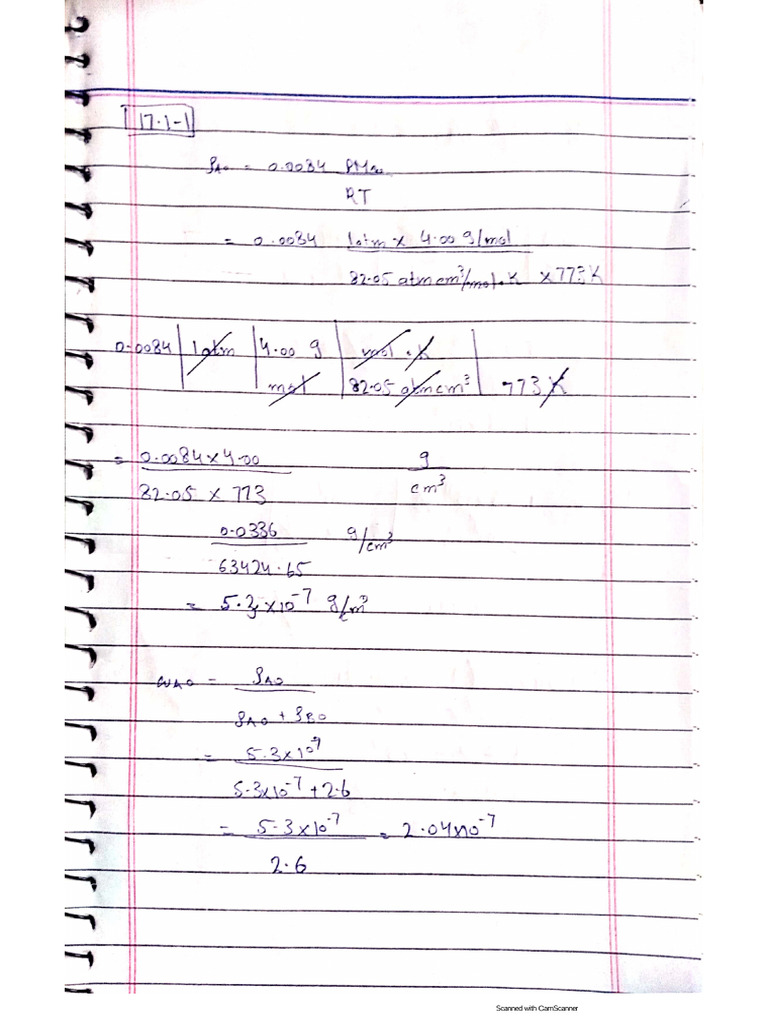 17.1-1
ρA0 = 0.0084 PMA0
RT
= 0.0084 1atm x 4.00 g/mol
82.05 atm cm³/mol.K x 773K
0.0084 | 1atm | 4.00 g | mol . K
mol | 82.05 atm cm³ | 773 K
= 0.0084 x 4.00 g
82.05 x 773 cm³
0.0336 g/cm³
63424.65
= 5.3 x 10⁻⁷ g/cm³
ωA0 = ρA0
ρA0 + ρB0
= 5.3 x 10⁻⁷
5.3 x 10⁻⁷ + 2.6
= 5.3 x 10⁻⁷ = 2.04 x 10⁻⁷
2.6
Scanned with CamScanner